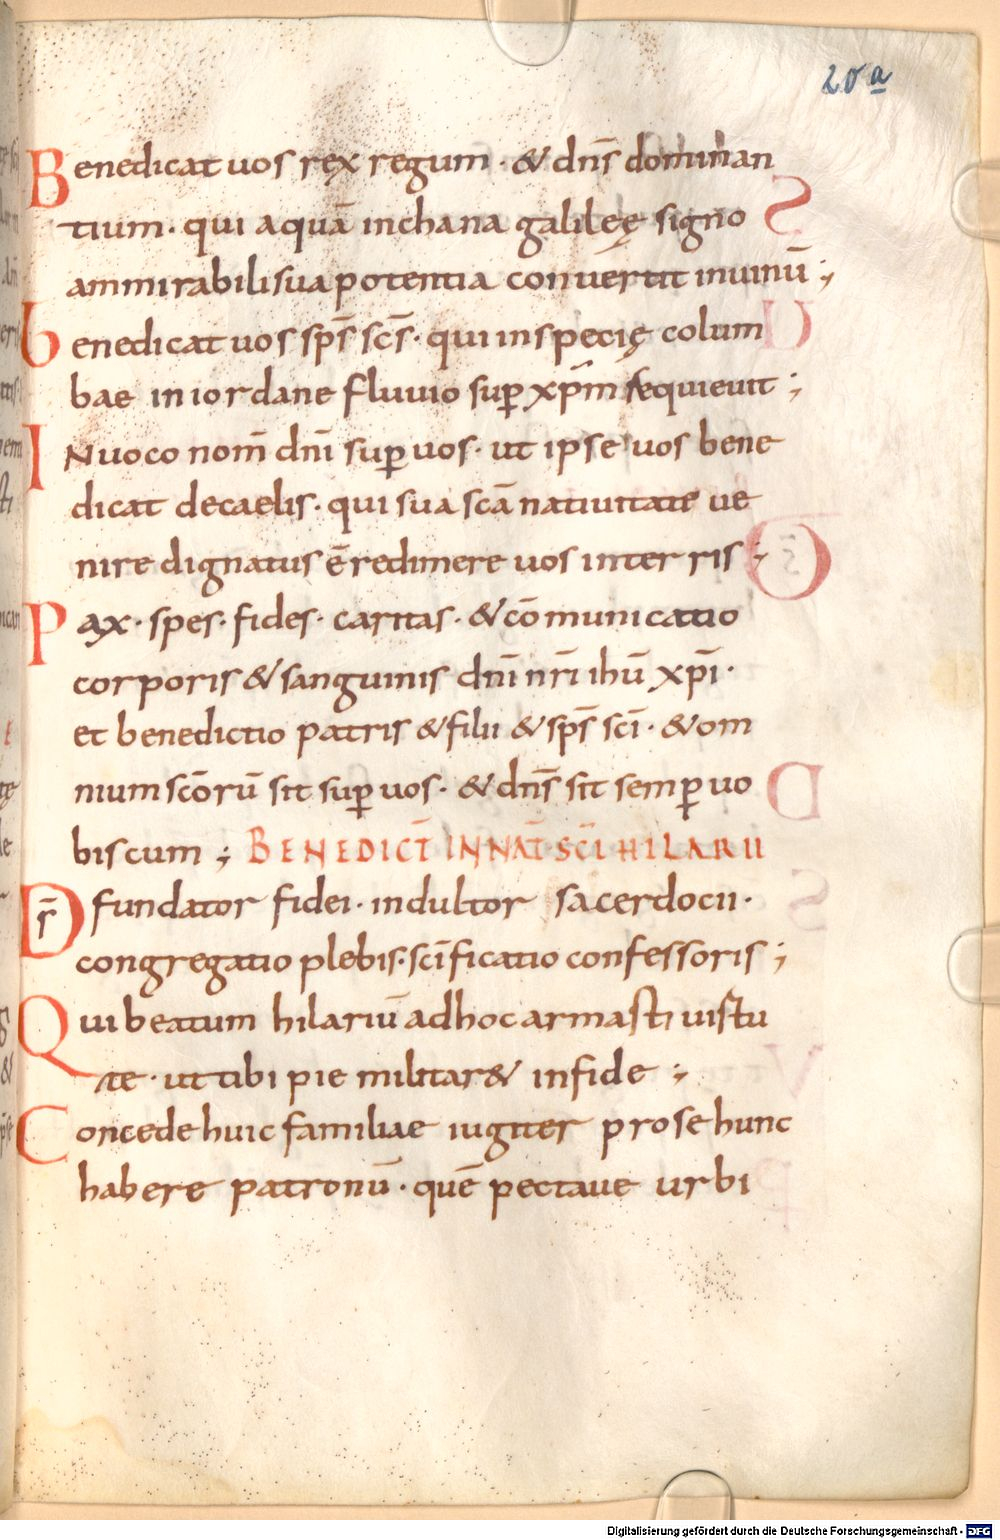 20a
Benedicat uos rex regum · & dn̄s dominan
tium · qui aquā inchana galileę signo
ammirabili sua potentia conuertit inuinū ;
benedicat uos sp̄s sc̄s · qui inspecię colum
bae in iordane fluuio sup̲ xp̄m requieuit ;
INuoco nom̄ dn̄i sup̲ uos · ut ipse uos bene
dicat decaelis · qui sua sc̄a natiuitate ue
nire dignatus ē redimere uos interris ;
Pax · spes · fides · caritas · & cōmunicatio
corporis & sanguinis dn̄i nr̄i ihū xp̄i ·
et benedictio patris & filii & sp̄s sc̄i · & om
nium sc̄orū sit sup̲ uos · & dn̄s sit semp̲ uo
biscum ; BENEDICT̄ IN NAT̄ SC̄I HILARII
Ds̄ fundator fidei · indultor sacerdocii ·
congregatio plebis · sc̄ificatio confessoris ;
Qui beatum hilariū adhoc armasti uirtu
te · ut tibi pie militar& infide ;
Concede huic familiae iugiter pro se hunc
habere patronū · quē pectaue urbi
Digitalisierung gefördert durch die Deutsche Forschungsgemeinschaft - DFG